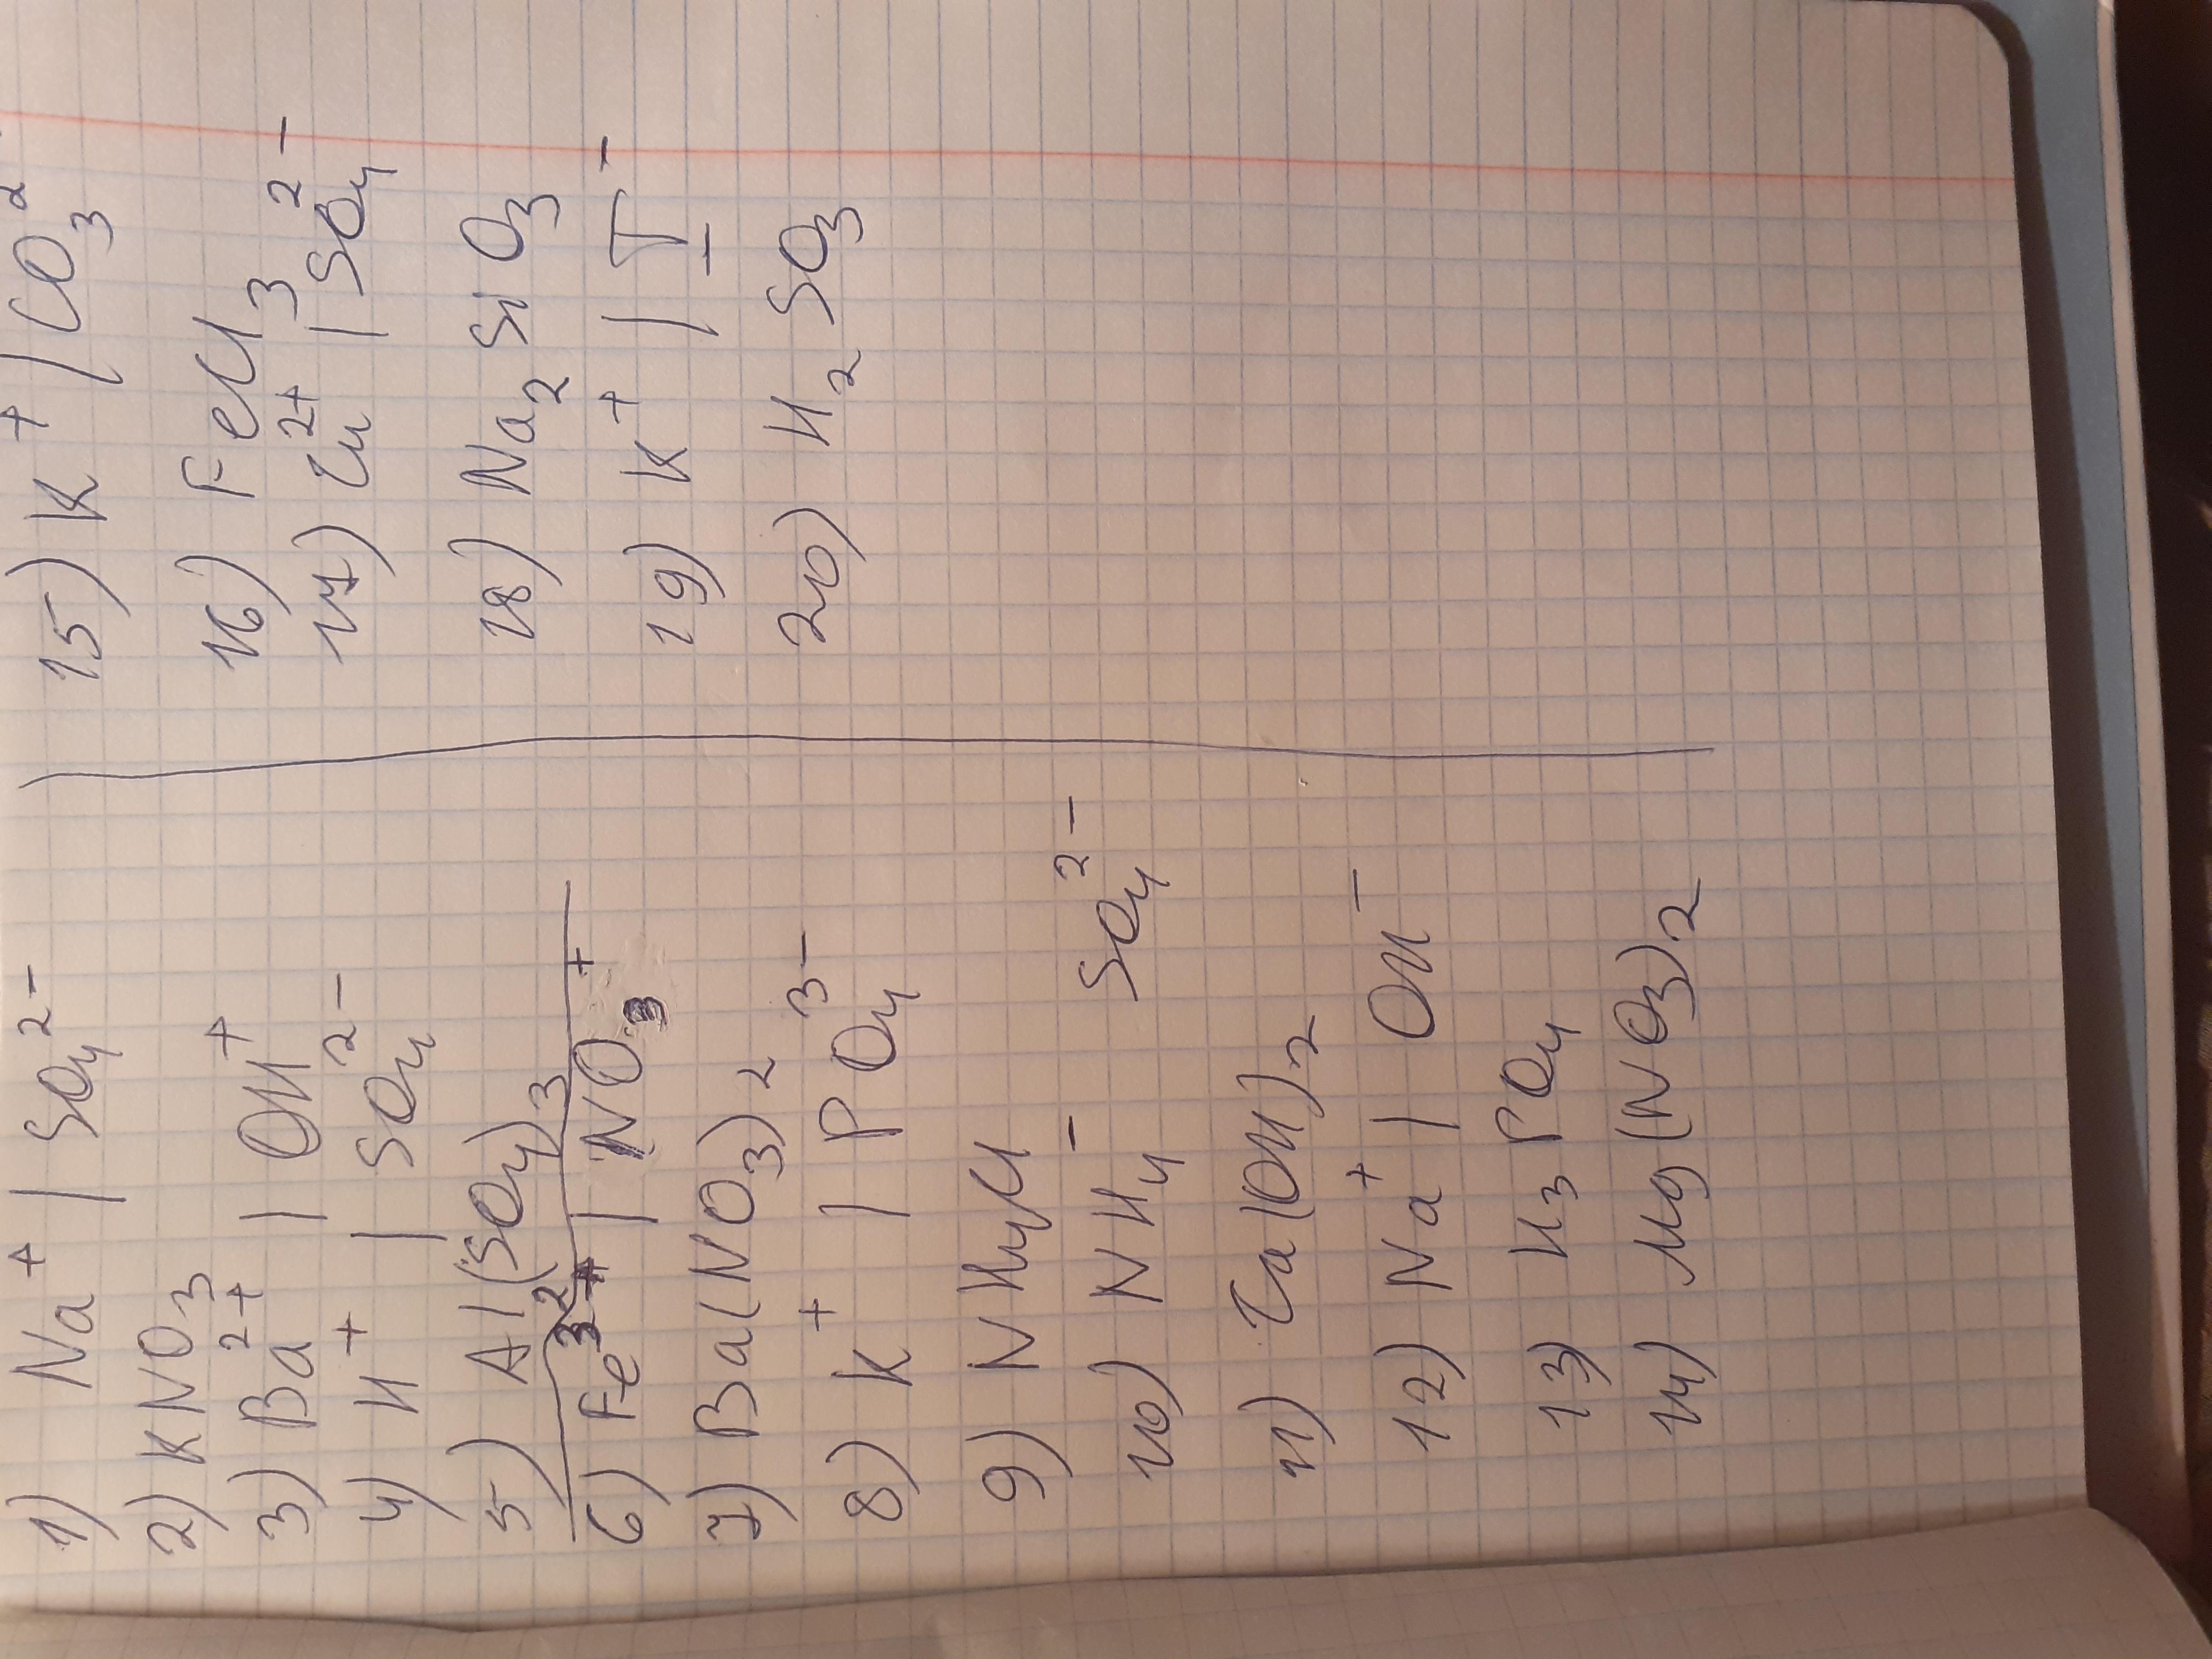 1) Na⁺ | SO₄²⁻
2) KNO₃
3) Ba²⁺ | OH⁺
4) H⁺ | SO₄²⁻
5) Al(SO₄)₃
6) Fe³⁺ | NO₃⁺
7) Ba(NO₃)₂
8) K⁺ | PO₄³⁻
9) NH₄Cl
10) NH₄⁻ SO₄²⁻
11) Ca(OH)₂
12) Na⁺ | OH⁻
13) H₃PO₄
14) Mg(NO₃)₂
15) K⁺ | CO₃²
16) FeCl₃
17) Cu²⁺ | SO₄²⁻
18) Na₂SiO₃
19) K⁺ | I⁻
20) H₂SO₃